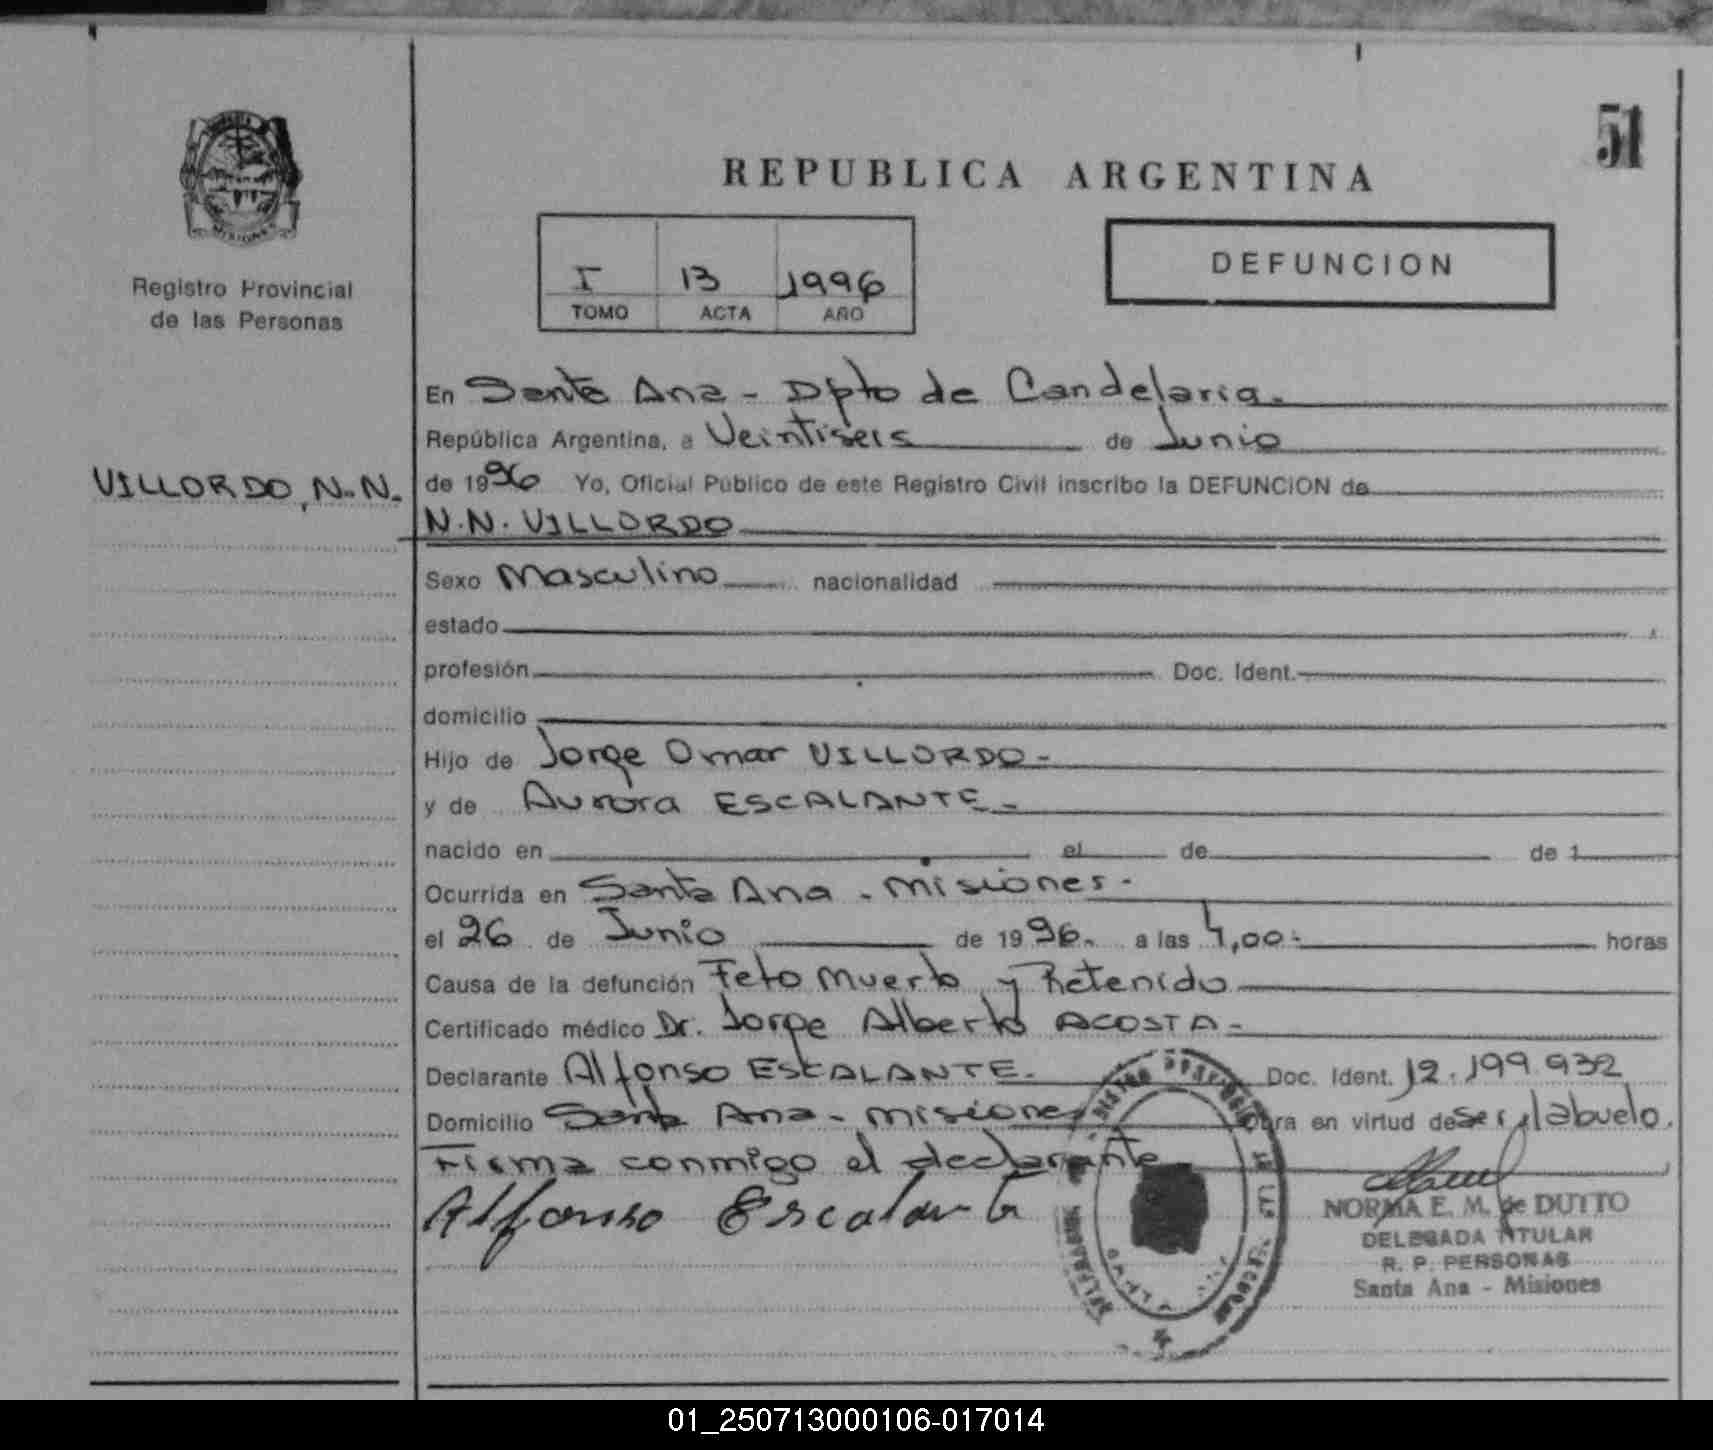 51
REPUBLICA ARGENTINA
MISIONES
Registro Provincial
de las Personas
I 13 1996
TOMO ACTA AÑO
DEFUNCION
En Santa Ana - Dpto de Candelaria.
República Argentina, a Veintiseis de Junio
VILLORDO, N.N.
de 1996 Yo, Oficial Público de este Registro Civil inscribo la DEFUNCION de
N.N. VILLORDO
Sexo Masculino nacionalidad
estado
profesión Doc. Ident.
domicilio
Hijo de Jorge Omar VILLORDO-
y de Aurora ESCALANTE-
nacido en el de de 1
Ocurrida en Santa Ana - Misiones-
el 26 de Junio de 1996. a las 4,00- horas
Causa de la defunción Feto Muerto y Retenido
Certificado médico Dr. Jorge Alberto ACOSTA-
Declarante Alfonso ESCALANTE. Doc. Ident. 12.199.932
Domicilio Santa Ana - Misiones Obra en virtud de ser el abuelo.
Firma conmigo el declarante
Alfonso Escalante
NORMA E. M. de DUTTO
DELEGADA TITULAR
R. P. PERSONAS
Santa Ana - Misiones
01_250713000106-017014